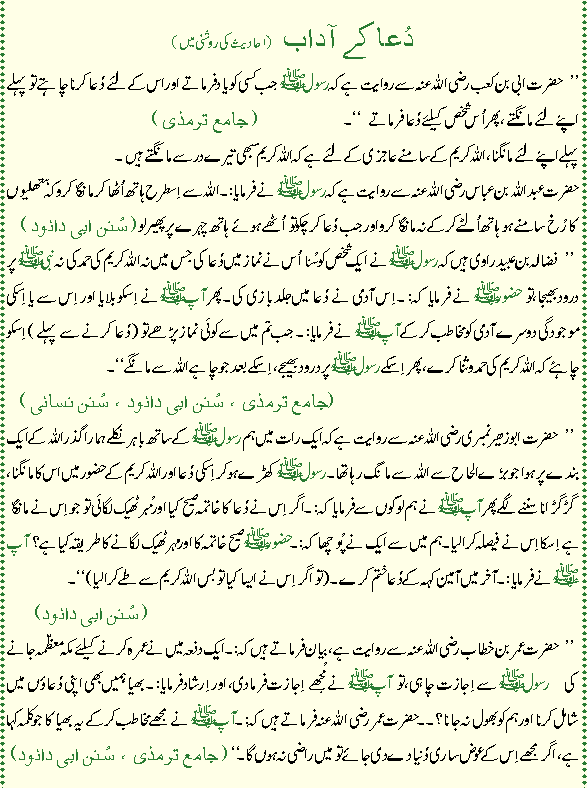 دُعا کے آداب (احادیث کی روشنی میں)
’’ حضرت ابی بن کعب رضی اللہ عنہ سے روایت ہے کہ رسول ﷺ جب کسی کو یاد فرماتے اور اس کے لئے دُعا کرنا چاہتے تو پہلے
اپنے لئے مانگتے، پھر اُس شخص کیلئے دُعا فرماتے ‘‘۔ (جامع ترمذی)
پہلے اپنے لئے مانگنا، اللہ کریم کے سامنے عاجزی کے لئے ہے کہ اللہ کریم سبھی تیرے در سے مانگتے ہیں ۔
حضرت عبداللہ بن عباس رضی اللہ عنہ سے روایت ہے کہ رسول ﷺ نے فرمایا:۔ اللہ سے اِسطرح ہاتھ اُٹھا کر مانگا کرو کہ ہتھلیوں
کا رُخ سامنے ہو ہاتھ اُلٹے کر کے نہ مانگا کرو اور جب دُعا کر چکو تو اُٹھے ہوئے ہاتھ چہرے پر پھیر لو (سُنن ابی دانود)
’’ فضالہ بن عبید راوی ہیں کہ رسول ﷺ نے ایک شخص کو سُنا اُس نے نماز میں دُعا کی جس میں نہ اللہ کریم کی حمد کی نہ نبی ﷺ پر
درود بھیجا تو حضور ﷺ نے فرمایا کہ:۔ اِس آدمی نے دُعا میں جلد بازی کی۔ پھر آپ ﷺ نے اِسکو بلایا اور اِس سے یا اِسکی
موجودگی دوسرے آدمی کو مخاطب کر کے آپ ﷺ نے فرمایا:۔ جب تم میں سے کوئی نماز پڑھے تو (دُعا کرنے سے پہلے) اِسکو
چاہئے کہ اللہ کریم کی حمد و ثنا کرے، پھر اِسکے رسول ﷺ پر درود بھیجے، اِسکے بعد جو چاہے اللہ سے مانگے‘‘۔
(جامع ترمذی ، سُنن ابی دانود ، سُنن نسائی)
’’ حضرت ابوزھیر نمیری رضی اللہ عنہ سے روایت ہے کہ ایک رات میں ہم رسول ﷺ کے ساتھ باہر نکلے ہمارا گذر اللہ کے ایک
بندے پر ہوا جو بڑے الحاح سے اللہ سے مانگ رہا تھا۔ رسول ﷺ کھڑے ہو کر اِسکی دُعا اور اللہ کریم کے حضور میں اس کا مانگنا،
گڑگڑانا سُننے لگے پھر آپ ﷺ نے ہم لوگوں سے فرمایا کہ:۔ اگر اِس نے دُعا کا خاتمہ صحیح کیا اور مُہر ٹھیک لگائی تو جو اِس نے مانگا
ہے اِسکا اِس نے فیصلہ کرا لیا۔ ہم میں سے ایک نے پُوچھا کہ:۔ حضور ﷺ صحیح خاتمہ کا اور مہر ٹھیک لگانے کا طریقہ کیا ہے؟ آپ
ﷺ نے فرمایا:۔ آخر میں آمین کہہ کے دُعا ختم کرے۔ (تو اگر اِس نے ایسا کیا تو بس اللہ کریم سے طے کرا لیا)‘‘۔
(سُنن ابی دانود)
’’ حضرت عمر بن خطاب رضی اللہ عنہ سے روایت ہے، بیان فرماتے ہیں کہ:۔ ایک دفعہ میں نے عمرہ کرنے کیلئے مکہ معظمہ جانے
کی رسول ﷺ سے اِجازت چاہی، تو آپ ﷺ نے مُجھے اِجازت فرما دی، اور اِرشاد فرمایا:۔ بھیا ہمیں بھی اپنی دُعاؤں میں
شامل کرنا اور ہم کو بھول نہ جانا؟۔۔ حضرت عمر رضی اللہ عنہ فرماتے ہیں کہ:۔ آپ ﷺ نے مجھے مخاطب کر کے یہ بھیا کا جو کلمہ کہا
ہے، اگر مجھے اِس کے عوض ساری دُنیا دے دی جائے تو میں راضی نہ ہوں گا۔‘‘ (جامع ترمذی ، سُنن ابی دانود)